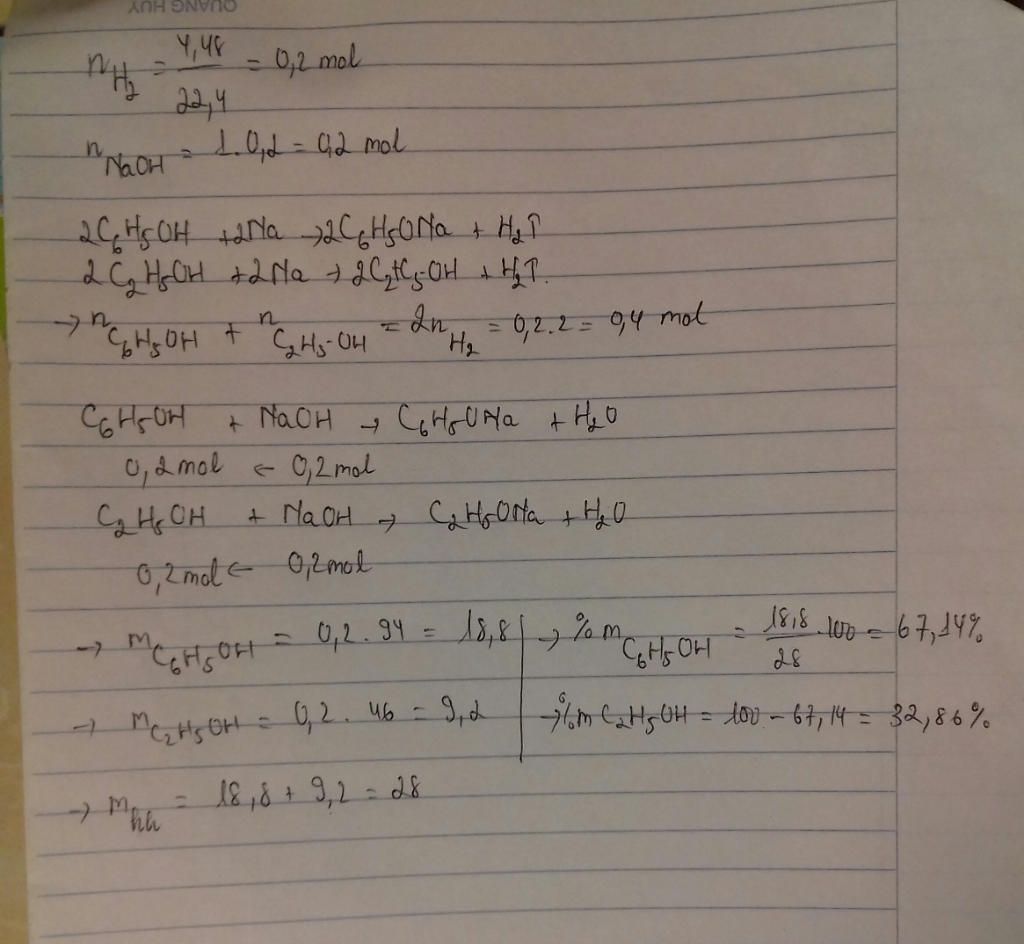 QUANG HUY
n_H₂ = 4,48/22,4 = 0,2 mol
n_NaOH = 1.0,2 = 0,2 mol
2C₆H₅OH +2Na →2C₆H₅ONa + H₂↑
2C₂H₅OH +2Na → 2C₂H5-OH + H₂↑.
→ n_C₆H₅OH + n_C₂H₅-OH = 2n_H₂ = 0,2.2 = 0,4 mol
C₆H₅OH + NaOH → C₆H₅ONa + H₂O
0,2mol ← 0,2mol
C₂H₅OH + NaOH → C₂H₅ONa + H₂O
0,2mol ← 0,2mol
→ m_C₆H₅OH = 0,2.94 = 18,8 → %m_C₆H₅OH = 18,8/28 .100 = 67,14%
→ m_C₂H₅OH = 0,2.46 = 9,2 →%m C₂H₅OH = 100 - 67,14 = 32,86%
→ m_hh = 18,8 + 9,2 = 28